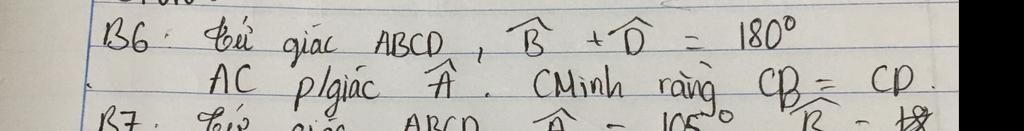 B6: tứ giác ABCD, B̂ + D̂ = 180°
AC p/giác Â. CMinh rằng CB = CD.
B7: Tứ giác ABCD Â = 105° B̂ =